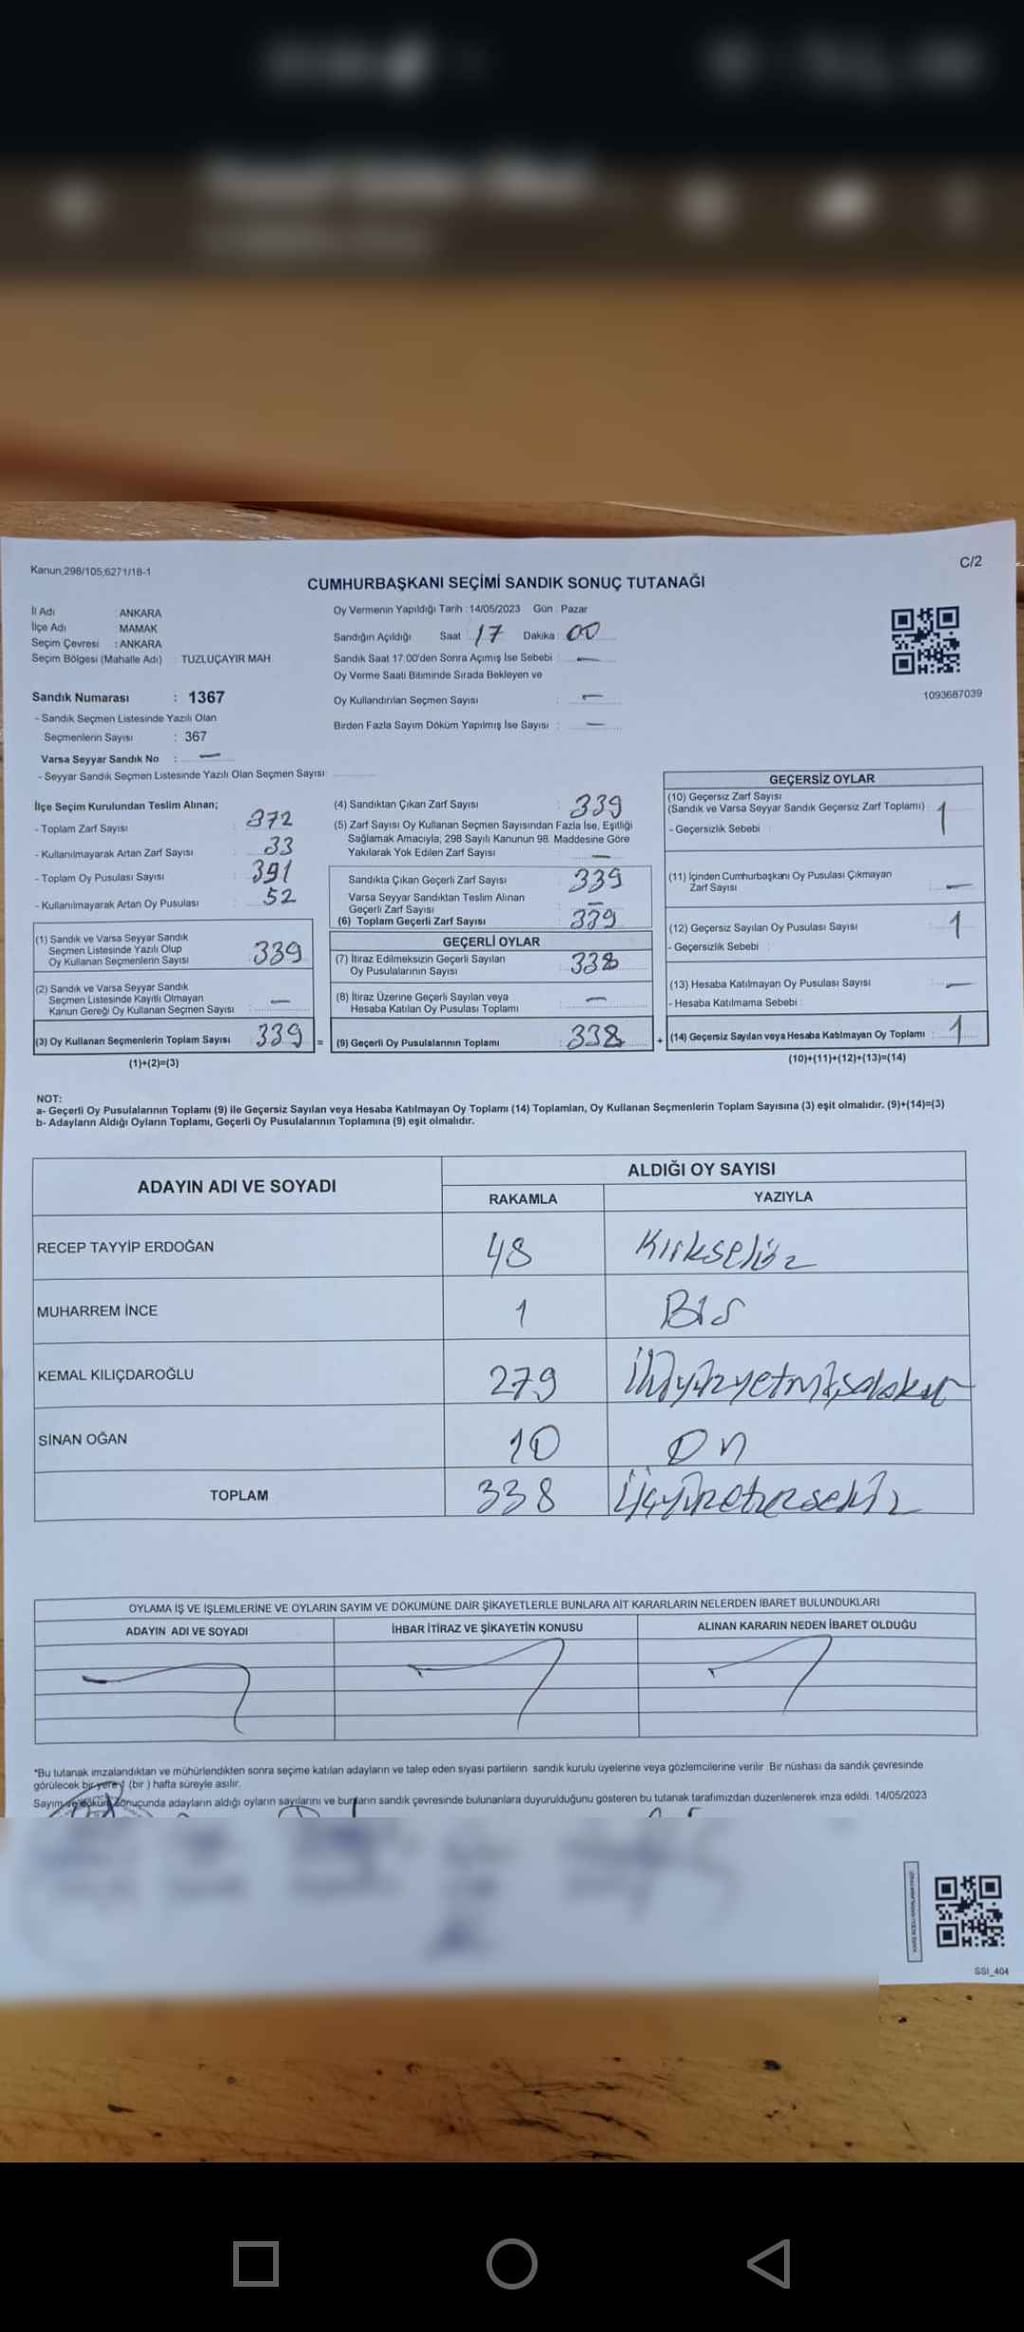 Kanun,298/105,6271/18-1
C/2
CUMHURBAŞKANI SEÇİMİ SANDIK SONUÇ TUTANAĞI
İl Adı : ANKARA
İlçe Adı : MAMAK
Seçim Çevresi : ANKARA
Seçim Bölgesi (Mahalle Adı) TUZLUÇAYIR MAH
Oy Vermenin Yapıldığı Tarih : 14/05/2023 Gün : Pazar
Sandığın Açıldığı Saat : 17 Dakika : 00
Sandık Saat 17:00'den Sonra Açımış İse Sebebi : —
Oy Verme Saati Bitiminde Sırada Bekleyen ve
Oy Kullandırılan Seçmen Sayısı : —
Birden Fazla Sayım Döküm Yapılmış İse Sayısı : —
1093687039
Sandık Numarası : 1367
- Sandık Seçmen Listesinde Yazılı Olan
Seçmenlerin Sayısı : 367
Varsa Seyyar Sandık No : —
- Seyyar Sandık Seçmen Listesinde Yazılı Olan Seçmen Sayısı
İlçe Seçim Kurulundan Teslim Alınan;
- Toplam Zarf Sayısı : 372
- Kullanılmayarak Artan Zarf Sayısı : 33
- Toplam Oy Pusulası Sayısı : 391
- Kullanılmayarak Artan Oy Pusulası : 52
(1) Sandık ve Varsa Seyyar Sandık
Seçmen Listesinde Yazılı Olup
Oy Kullanan Seçmenlerin Sayısı 339
(2) Sandık ve Varsa Seyyar Sandık
Seçmen Listesinde Kayıtlı Olmayan
Kanun Gereği Oy Kullanan Seçmen Sayısı : —
(3) Oy Kullanan Seçmenlerin Toplam Sayısı : 339 =
(1)+(2)=(3)
(4) Sandıktan Çıkan Zarf Sayısı : 339
(5) Zarf Sayısı Oy Kullanan Seçmen Sayısından Fazla İse, Eşitliği
Sağlamak Amacıyla, 298 Sayılı Kanunun 98. Maddesine Göre
Yakılarak Yok Edilen Zarf Sayısı : —
Sandıkta Çıkan Geçerli Zarf Sayısı : 339
Varsa Seyyar Sandıktan Teslim Alınan
Geçerli Zarf Sayısı : —
(6) Toplam Geçerli Zarf Sayısı : 339
GEÇERLİ OYLAR
(7) İtiraz Edilmeksizin Geçerli Sayılan
Oy Pusulalarının Sayısı : 338
(8) İtiraz Üzerine Geçerli Sayılan veya
Hesaba Katılan Oy Pusulası Toplamı : —
(9) Geçerli Oy Pusulalarının Toplamı : 338 +
GEÇERSİZ OYLAR
(10) Geçersiz Zarf Sayısı
(Sandık ve Varsa Seyyar Sandık Geçersiz Zarf Toplamı) : 1
- Geçersizlik Sebebi :
(11) İçinden Cumhurbaşkanı Oy Pusulası Çıkmayan
Zarf Sayısı : —
(12) Geçersiz Sayılan Oy Pusulası Sayısı : 1
- Geçersizlik Sebebi :
(13) Hesaba Katılmayan Oy Pusulası Sayısı : —
- Hesaba Katılmama Sebebi :
(14) Geçersiz Sayılan veya Hesaba Katılmayan Oy Toplamı : 1
(10)+(11)+(12)+(13)=(14)
NOT:
a- Geçerli Oy Pusulalarının Toplamı (9) ile Geçersiz Sayılan veya Hesaba Katılmayan Oy Toplamı (14) Toplamları, Oy Kullanan Seçmenlerin Toplam Sayısına (3) eşit olmalıdır. (9)+(14)=(3)
b- Adayların Aldığı Oyların Toplamı, Geçerli Oy Pusulalarının Toplamına (9) eşit olmalıdır.
ADAYIN ADI VE SOYADI ALDIĞI OY SAYISI
RAKAMLA YAZIYLA
RECEP TAYYİP ERDOĞAN 48 Kırksekiz
MUHARREM İNCE 1 Bir
KEMAL KILIÇDAROĞLU 279 İkiyüzyetmişdokuz
SİNAN OĞAN 10 On
TOPLAM 338 Üçyüzotuzsekiz
OYLAMA İŞ VE İŞLEMLERİNE VE OYLARIN SAYIM VE DÖKÜMÜNE DAİR ŞİKAYETLERLE BUNLARA AİT KARARLARIN NELERDEN İBARET BULUNDUKLARI
ADAYIN ADI VE SOYADI İHBAR İTİRAZ VE ŞİKAYETİN KONUSU ALINAN KARARIN NEDEN İBARET OLDUĞU
*Bu tutanak imzalandıktan ve mühürlendikten sonra seçime katılan adayların ve talep eden siyasi partilerin sandık kurulu üyelerine veya gözlemcilerine verilir. Bir nüshası da sandık çevresinde
görülecek bir yere 1 (bir ) hafta süreyle asılır.
Sayım ve döküm sonuçunda adayların aldığı oyların sayılarını ve bunların sandık çevresinde bulunanlara duyurulduğunu gösteren bu tutanak tarafımızdan düzenlenerek imza edildi. 14/05/2023
SSI_404